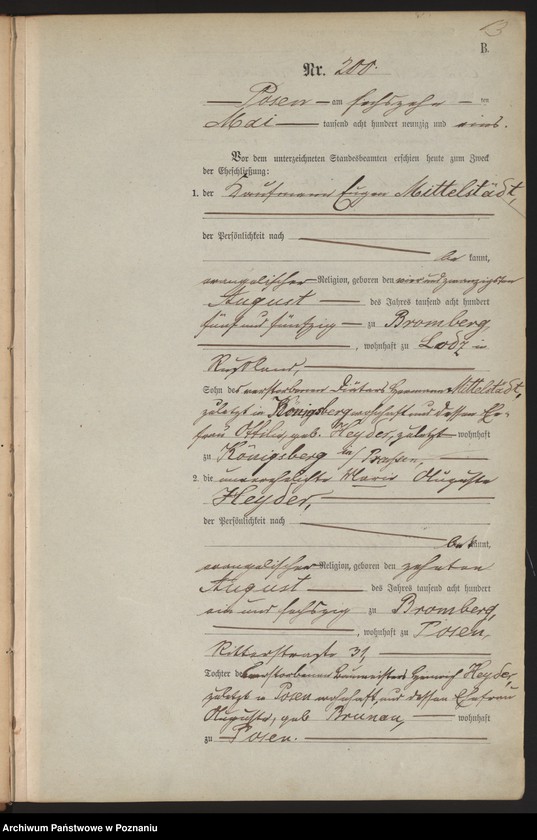 13
B.
Nr. 200.
Posen am sechszehn ten
Mai tausend acht hundert neunzig und eins.
Vor dem unterzeichneten Standesbeamten erschien heute zum Zweck
der Eheschließung:
1. der Kaufmann Eugen Mittelstädt,
der Persönlichkeit nach
be kannt,
evangelischer Religion, geboren den vier und zwanzigsten
August des Jahres tausend acht hundert
fünf und fünfzig zu Bromberg,
, wohnhaft zu Lodz in
Rußland,
Sohn des verstorbenen Diätars Hermann Mittelstädt,
zuletzt in Königsberg wohnhaft und dessen Ehe-
frau Ottilie, geb. Heyder, zuletzt wohnhaft
zu Königsberg in/Preußen,
2. die unverehelichte Marie Auguste
Heyder,
der Persönlichkeit nach
be kannt,
evangelischer Religion, geboren den zehnten
August des Jahres tausend acht hundert
ein und sechszig zu Bromberg,
, wohnhaft zu Posen,
Ritterstraße 31,
Tochter des verstorbenen Baumeisters Heinrich Heyder,
zuletzt in Posen wohnhaft, und dessen Ehefrau
Auguste, geb Brünau, wohnhaft
zu Posen.
Archiwum Państwowe w Poznaniu